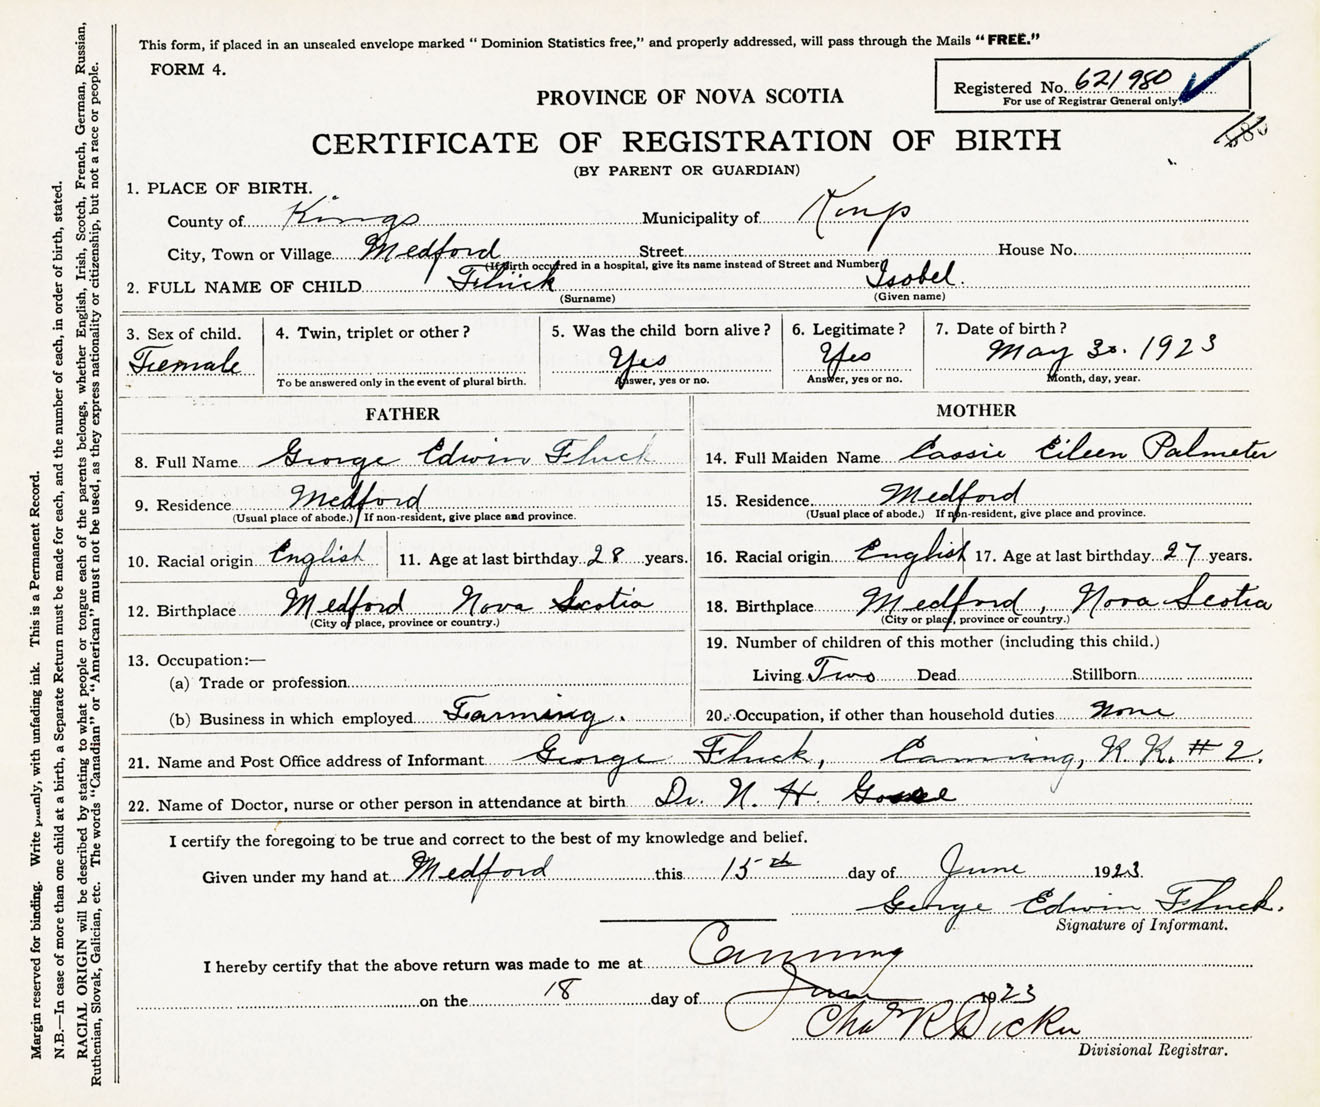 This form, if placed in an unsealed envelope marked "Dominion Statistics free," and properly addressed, will pass through the Mails "FREE."
FORM 4.
Registered No. 621980
For use of Registrar General only
PROVINCE OF NOVA SCOTIA
CERTIFICATE OF REGISTRATION OF BIRTH
(BY PARENT OR GUARDIAN)
1. PLACE OF BIRTH.
County of Kings Municipality of Kings
City, Town or Village Medford Street House No.
(If birth occurred in a hospital, give its name instead of Street and Number)
2. FULL NAME OF CHILD Fluck Isobel.
(Surname) (Given name)
3. Sex of child. 4. Twin, triplet or other? 5. Was the child born alive? 6. Legitimate? 7. Date of birth?
Female Yes Yes May 30. 1923
To be answered only in the event of plural birth. Answer, yes or no. Answer, yes or no. Month, day, year.
FATHER
8. Full Name George Edwin Fluck
9. Residence Medford
(Usual place of abode.) If non-resident, give place and province.
10. Racial origin English 11. Age at last birthday 28 years.
12. Birthplace Medford Nova Scotia
(City or place, province or country.)
13. Occupation:—
(a) Trade or profession
(b) Business in which employed Farming.
MOTHER
14. Full Maiden Name Cassie Eileen Palmeter
15. Residence Medford
(Usual place of abode.) If non-resident, give place and province.
16. Racial origin English 17. Age at last birthday 27 years.
18. Birthplace Medford, Nova Scotia
(City or place, province or country.)
19. Number of children of this mother (including this child.)
Living Two Dead Stillborn
20. Occupation, if other than household duties None
21. Name and Post Office address of Informant George Fluck, Canning, R.R. #2.
22. Name of Doctor, nurse or other person in attendance at birth Dr. N. H.
I certify the foregoing to be true and correct to the best of my knowledge and belief.
Given under my hand at Medford this 15th day of June 1923.
George Edwin Fluck.
Signature of Informant.
I hereby certify that the above return was made to me at Canning
on the 18 day of June 1923
Chas R Dickie
Divisional Registrar.
Margin reserved for binding. Write plainly, with unfading ink. This is a Permanent Record.
N.B.—In case of more than one child at a birth, a Separate Return must be made for each, and the number of each, in order of birth, stated.
RACIAL ORIGIN will be described by stating to what people or tongue each of the parents belongs, whether English, Irish, Scotch, French, German, Russian,
Ruthenian, Slovak, Galician, etc. The words "Canadian" or "American" must not be used, as they express nationality or citizenship, but not a race or people.